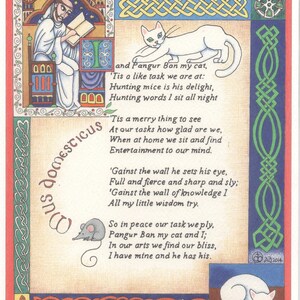 I
and Pangur Ban my cat,
'Tis a like task we are at:
Hunting mice is his delight,
Hunting words I sit all night
'Tis a merry thing to see
At our tasks how glad are we,
When at home we sit and find
Entertainment to our mind.
'Gainst the wall he sets his eye,
Full and fierce and sharp and sly;
'Gainst the wall of knowledge I
All my little wisdom try.
So in peace our task we ply,
Pangur Ban my cat and I;
In our arts we find our bliss,
I have mine and he has his.
Mus domesticus